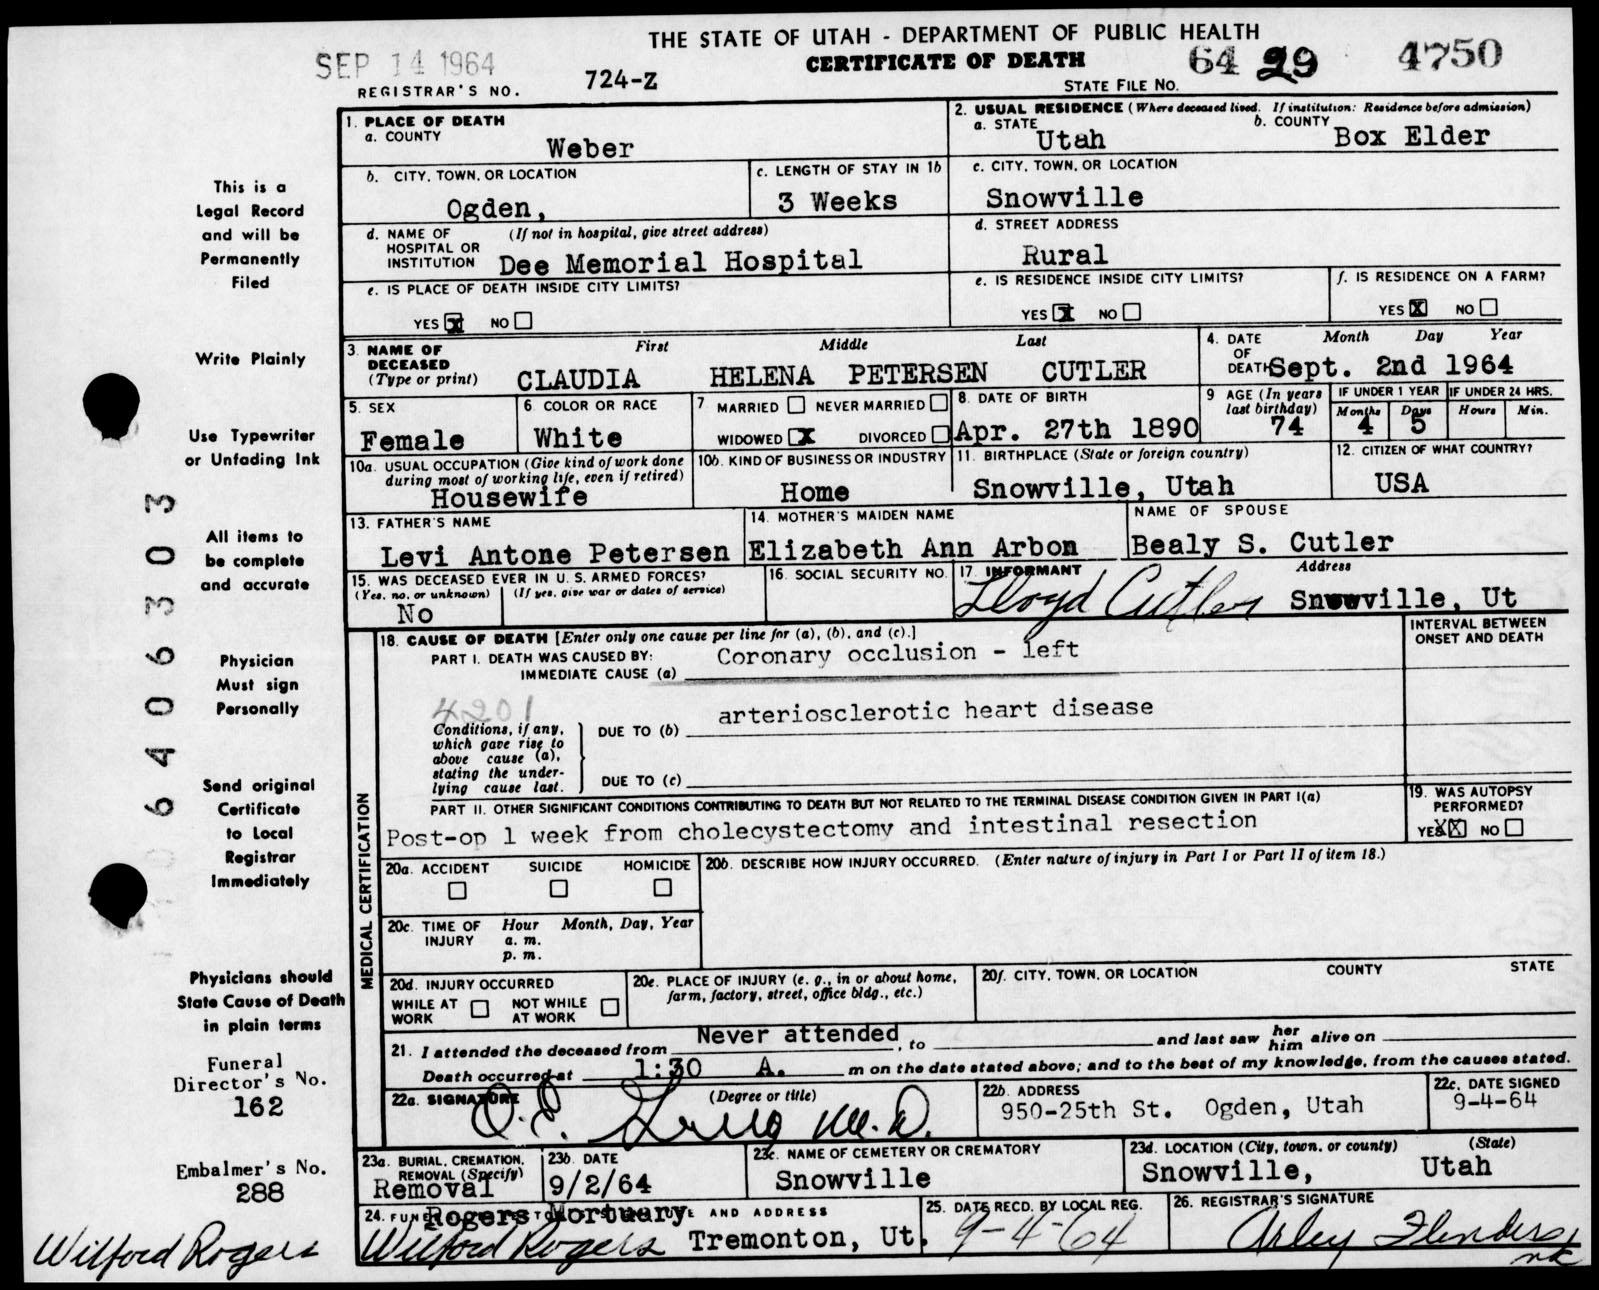 THE STATE OF UTAH - DEPARTMENT OF PUBLIC HEALTH
SEP 14 1964
CERTIFICATE OF DEATH
64 29 4750
REGISTRAR'S NO. 724-Z
STATE FILE NO.
1. PLACE OF DEATH
a. COUNTY
Weber
2. USUAL RESIDENCE (Where deceased lived. If institution: Residence before admission)
a. STATE
Utah
b. COUNTY
Box Elder
b. CITY, TOWN, OR LOCATION
Ogden,
c. LENGTH OF STAY IN 1b
3 Weeks
c. CITY, TOWN, OR LOCATION
Snowville
d. NAME OF HOSPITAL OR INSTITUTION
(If not in hospital, give street address)
Dee Memorial Hospital
d. STREET ADDRESS
Rural
e. IS PLACE OF DEATH INSIDE CITY LIMITS?
YES X NO
e. IS RESIDENCE INSIDE CITY LIMITS?
YES X NO
f. IS RESIDENCE ON A FARM?
YES X NO
3. NAME OF DECEASED
(Type or print)
First Middle Last
CLAUDIA HELENA PETERSEN CUTLER
4. DATE OF DEATH
Month Day Year
Sept. 2nd 1964
5. SEX
Female
6. COLOR OR RACE
White
7 MARRIED NEVER MARRIED
WIDOWED X DIVORCED
8. DATE OF BIRTH
Apr. 27th 1890
9 AGE (In years last birthday)
74
IF UNDER 1 YEAR
Months Days
4 5
IF UNDER 24 HRS.
Hours Min.
10a. USUAL OCCUPATION (Give kind of work done during most of working life, even if retired)
Housewife
10b. KIND OF BUSINESS OR INDUSTRY
Home
11. BIRTHPLACE (State or foreign country)
Snowville, Utah
12. CITIZEN OF WHAT COUNTRY?
USA
13. FATHER'S NAME
Levi Antone Petersen
14. MOTHER'S MAIDEN NAME
Elizabeth Ann Arbon
NAME OF SPOUSE
Bealy S. Cutler
15. WAS DECEASED EVER IN U.S. ARMED FORCES?
(Yes, no, or unknown) (If yes, give war or dates of service)
No
16. SOCIAL SECURITY NO.
17. INFORMANT Address
Lloyd Cutler Snowville, Ut
18. CAUSE OF DEATH [Enter only one cause per line for (a), (b), and (c).]
INTERVAL BETWEEN ONSET AND DEATH
PART I. DEATH WAS CAUSED BY:
IMMEDIATE CAUSE (a) Coronary occlusion - left
4201
Conditions, if any, which gave rise to above cause (a), stating the underlying cause last.
DUE TO (b) arteriosclerotic heart disease
DUE TO (c)
PART II. OTHER SIGNIFICANT CONDITIONS CONTRIBUTING TO DEATH BUT NOT RELATED TO THE TERMINAL DISEASE CONDITION GIVEN IN PART I(a)
Post-op 1 week from cholecystectomy and intestinal resection
19. WAS AUTOPSY PERFORMED?
YES X NO
MEDICAL CERTIFICATION
20a. ACCIDENT SUICIDE HOMICIDE
20b. DESCRIBE HOW INJURY OCCURRED. (Enter nature of injury in Part I or Part II of item 18.)
20c. TIME OF INJURY Hour Month, Day, Year
a. m.
p. m.
20d. INJURY OCCURRED
WHILE AT WORK NOT WHILE AT WORK
20e. PLACE OF INJURY (e. g., in or about home, farm, factory, street, office bldg., etc.)
20f. CITY, TOWN, OR LOCATION COUNTY STATE
21. I attended the deceased from Never attended, to and last saw her him alive on
Death occurred at 1:30 A. m on the date stated above; and to the best of my knowledge, from the causes stated.
22a. SIGNATURE (Degree or title)
M.D.
22b. ADDRESS
950-25th St. Ogden, Utah
22c. DATE SIGNED
9-4-64
23a. BURIAL, CREMATION, REMOVAL (Specify)
Removal
23b. DATE
9/2/64
23c. NAME OF CEMETERY OR CREMATORY
Snowville
23d. LOCATION (City, town, or county) (State)
Snowville, Utah
24. AND ADDRESS
Rogers Mortuary
Wilford Rogers Tremonton, Ut.
25. DATE RECD. BY LOCAL REG.
9-4-64
26. REGISTRAR'S SIGNATURE
Arley Flinders
nk
This is a
Legal Record
and will be
Permanently
Filed
Write Plainly
Use Typewriter
or Unfading Ink
All items to
be complete
and accurate
Physician
Must sign
Personally
Send original
Certificate
to Local
Registrar
Immediately
Physicians should
State Cause of Death
in plain terms
Funeral
Director's No.
162
Embalmer's No.
288
Wilford Rogers
640630 3